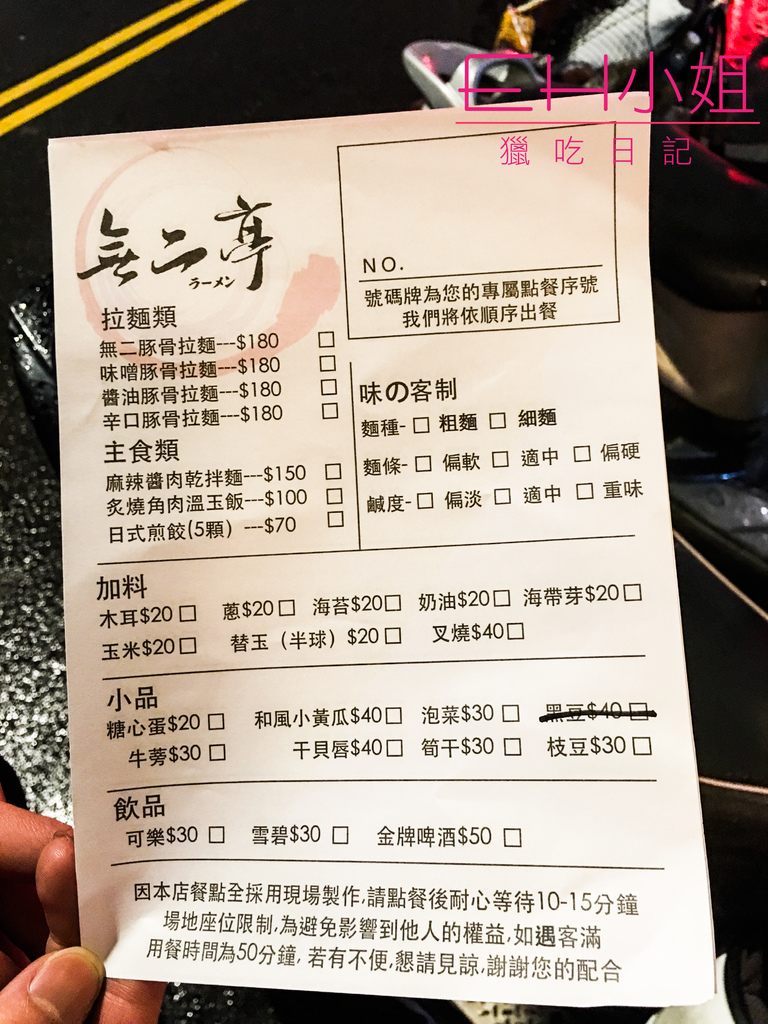 EH小姐
獵吃日記
無二亭
ラーメン
NO.
號碼牌為您的專屬點餐序號
我們將依順序出餐
拉麵類
無二豚骨拉麵---$180 □
味噌豚骨拉麵---$180 □
醬油豚骨拉麵---$180 □
辛口豚骨拉麵---$180 □
主食類
麻辣醬肉乾拌麵---$150 □
炙燒角肉溫玉飯---$100 □
日式煎餃(5顆) ---$70 □
味の客制
麵種- □ 粗麵 □ 細麵
麵條- □ 偏軟 □ 適中 □ 偏硬
鹹度- □ 偏淡 □ 適中 □ 重味
加料
木耳$20 □ 蔥$20 □ 海苔$20 □ 奶油$20 □ 海帶芽$20 □
玉米$20 □ 替玉（半球）$20 □ 叉燒$40 □
小品
糖心蛋$20 □ 和風小黃瓜$40 □ 泡菜$30 □ 黑豆$40 □
牛蒡$30 □ 干貝唇$40 □ 筍干$30 □ 枝豆$30 □
飲品
可樂$30 □ 雪碧$30 □ 金牌啤酒$50 □
因本店餐點全採用現場製作,請點餐後耐心等待10-15分鐘
場地座位限制,為避免影響到他人的權益,如遇客滿
用餐時間為50分鐘, 若有不便,懇請見諒,謝謝您的配合